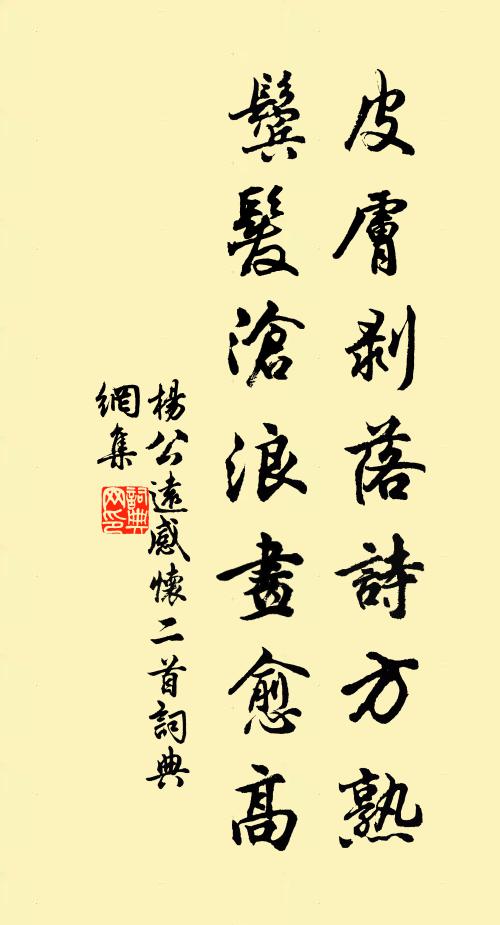 皮膚剥落詩方熟
鬢髮滄浪畫愈高
楊公遠感懷二首詞典
網集
詞典
网印